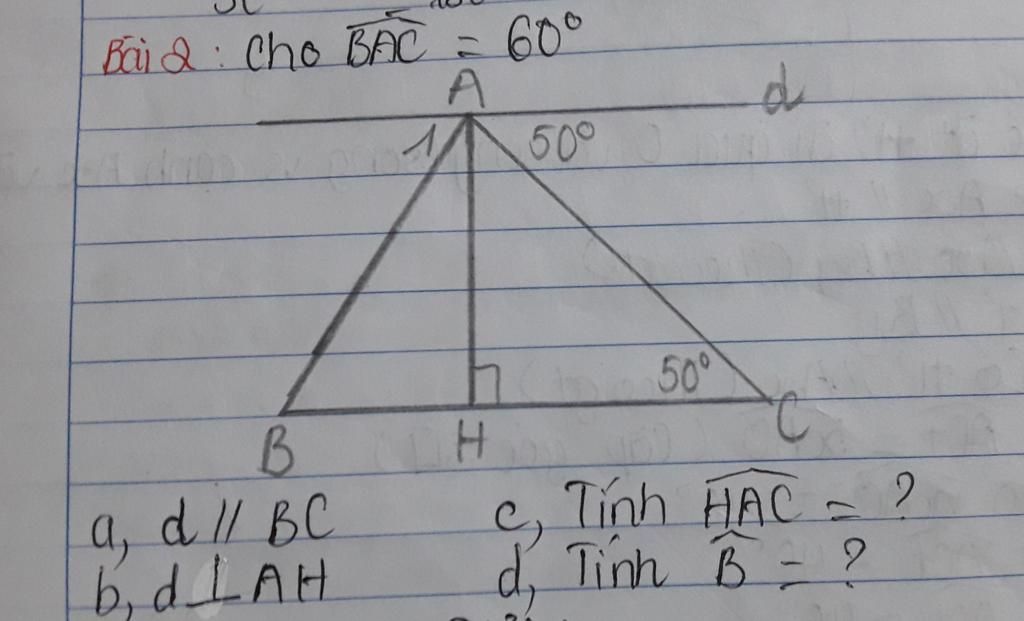 Bài 2 : Cho BAC = 60°
A
d
1
50°
50°
B
H
C
a, d // BC
c, Tính HAC = ?
b, d ⊥ AH
d, Tính B = ?